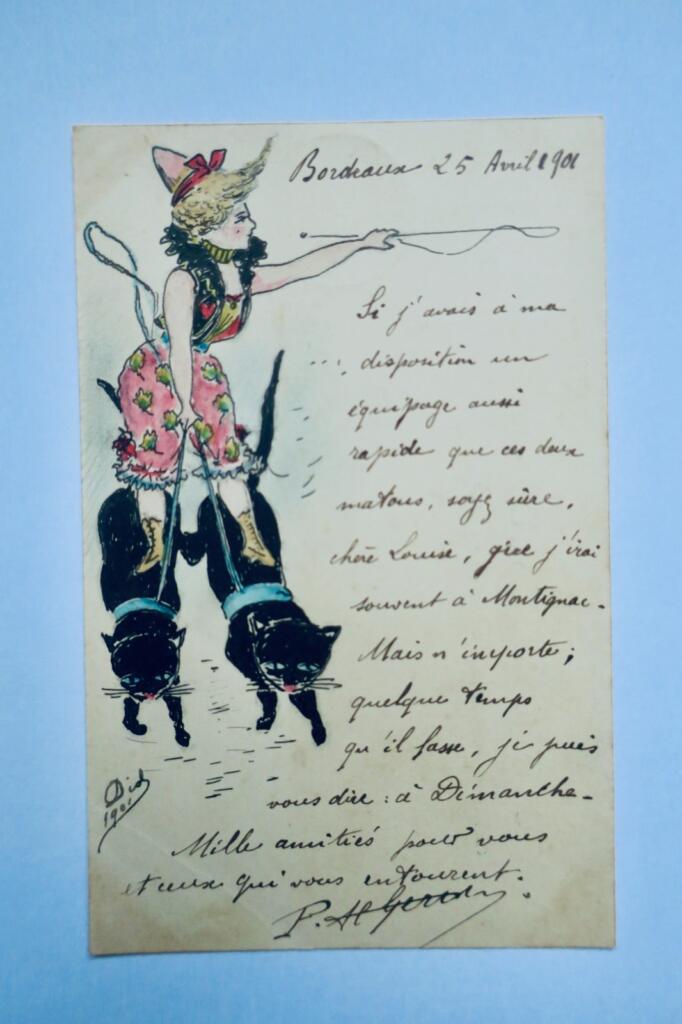 Bordeaux 25 Avril 1901
Si j'avais à ma
disposition un
équipage aussi
rapide que ces deux
matous, soyez sûre,
chère Louise, que j'irai
souvent à Montignac.
Mais n'importe;
quelque temps
qu'il fasse, je puis
vous dire : à Dimanche-
Mille amitiés pour vous
et ceux qui vous entourent.
P. H
1901